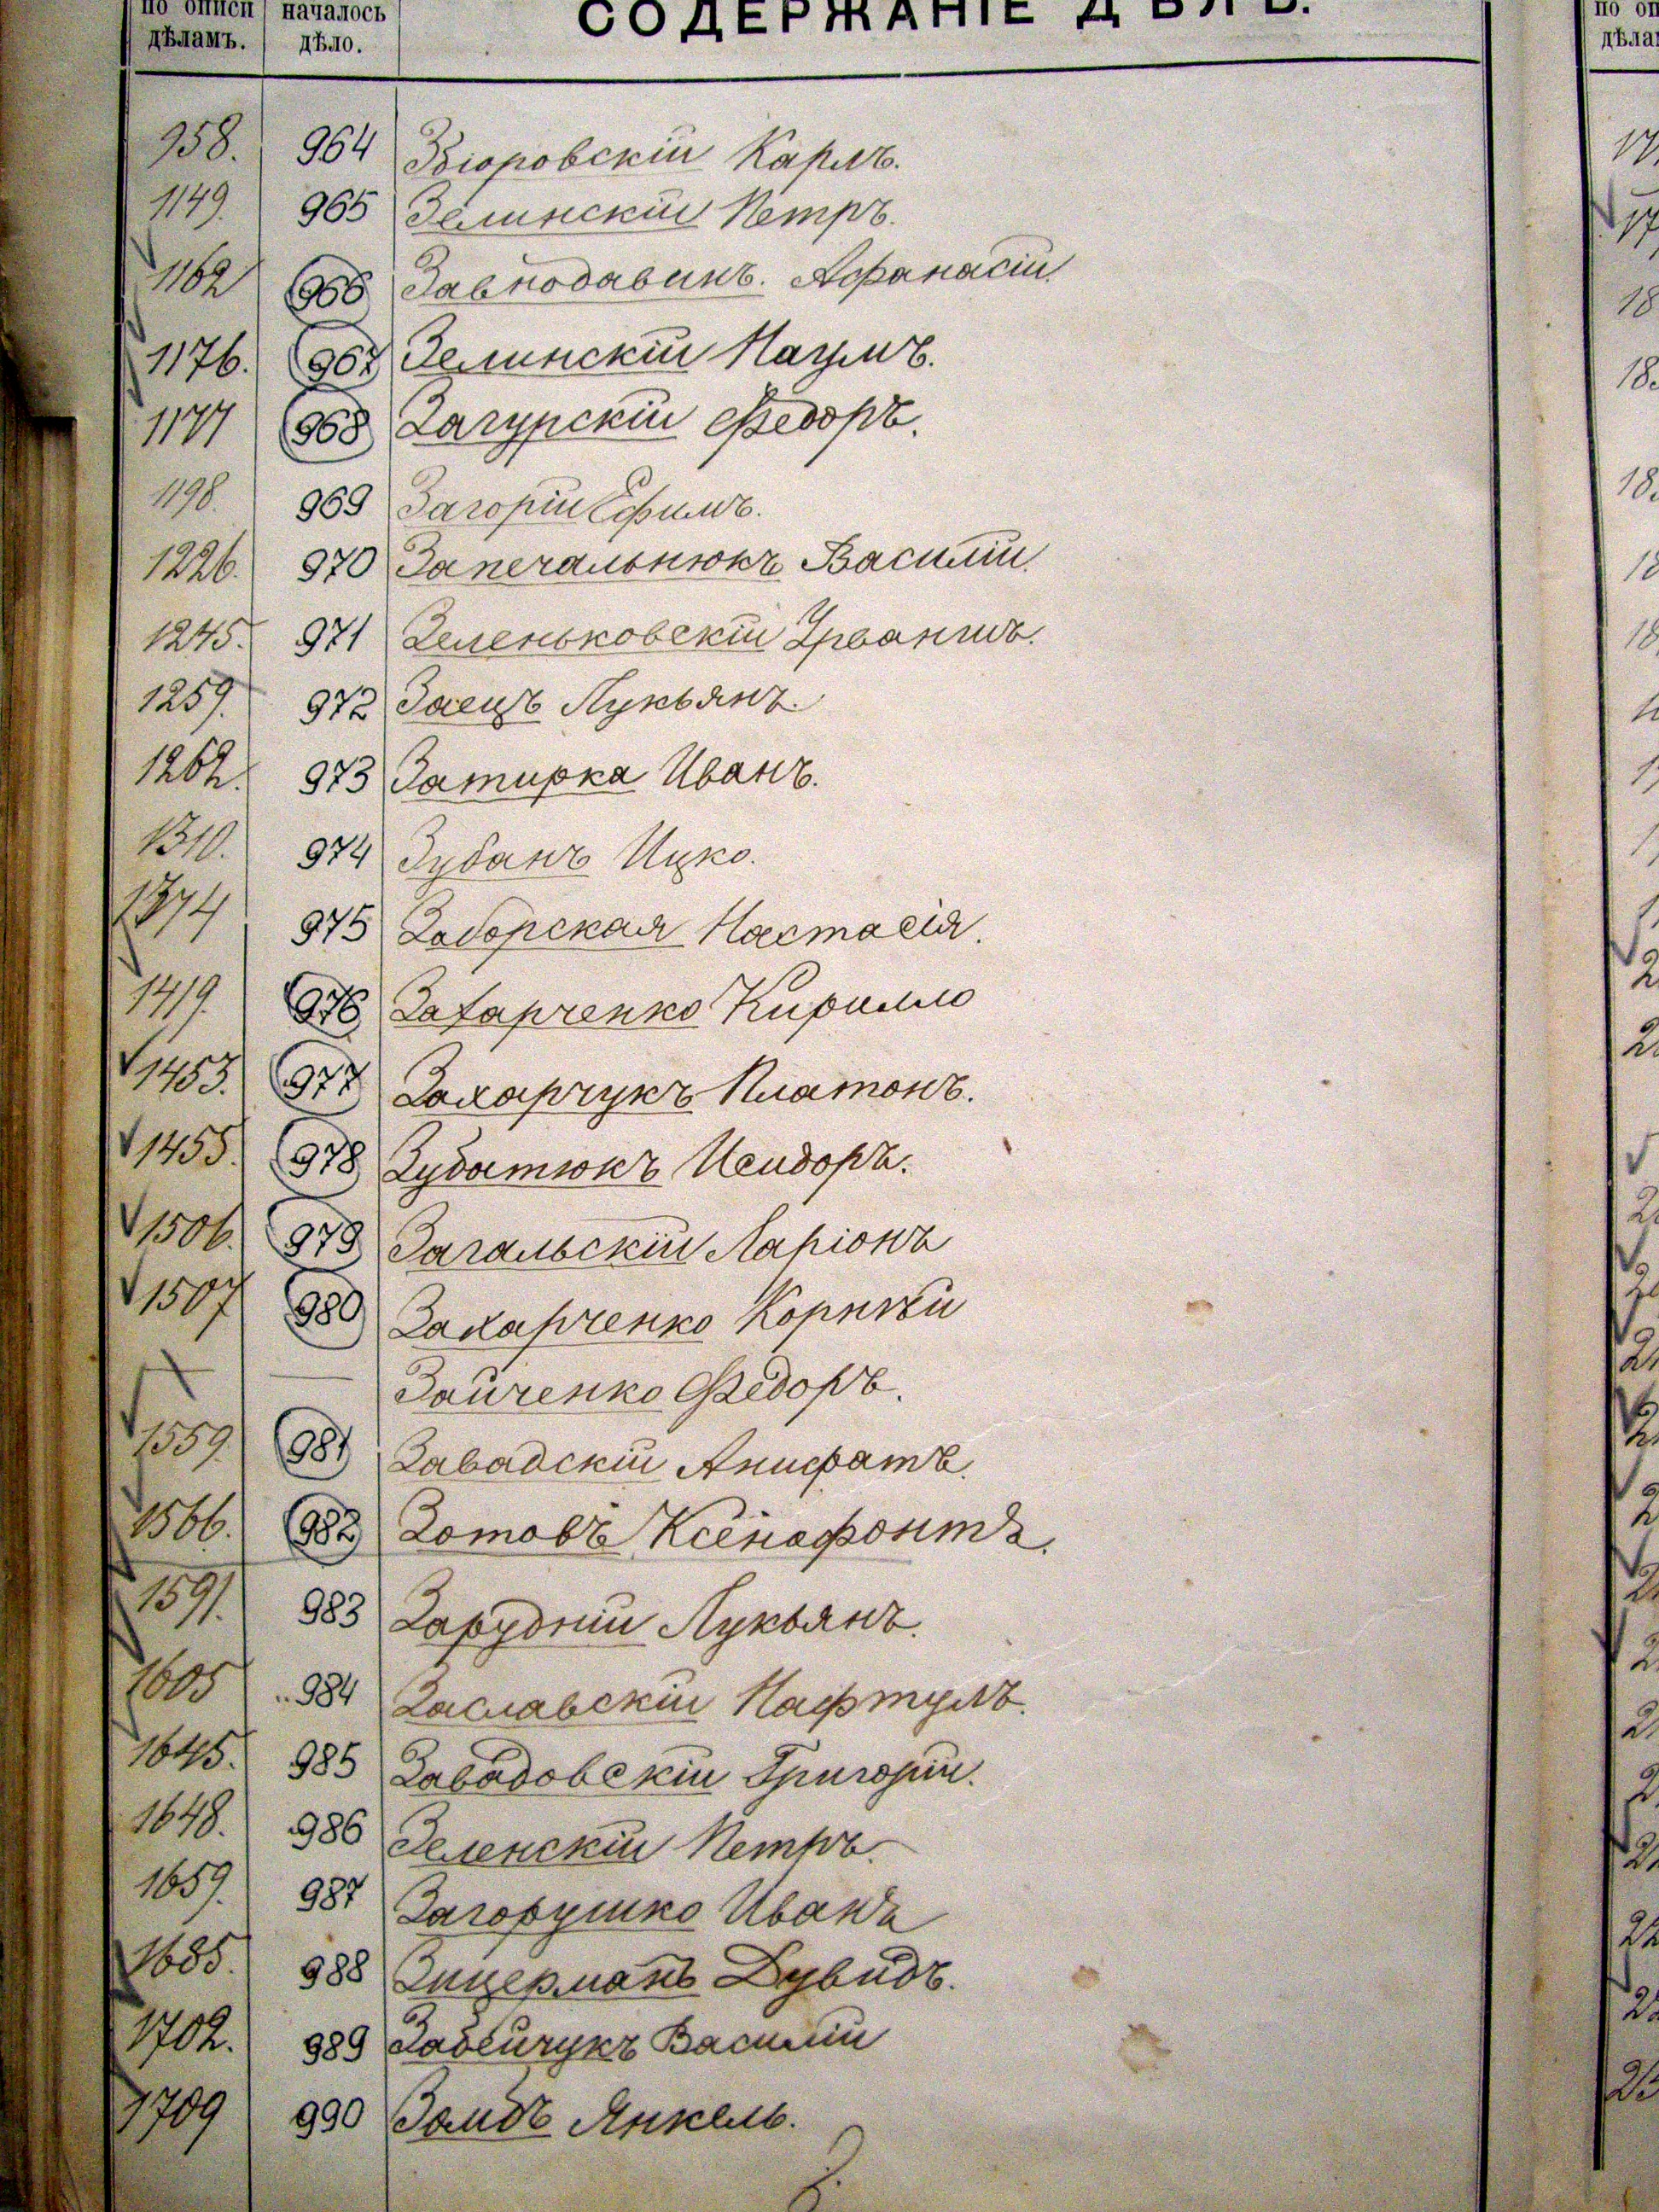 по описи началось СОДЕРЖАНІЕ ДѢЛЪ. по оп
дѣламъ. дѣло. дѣла
958. 964 Збіоровскій Карлъ.
1149. 965 Зелинскій Петръ.
1162 966 Афанасій
1176. 967 Зелинскій Наумъ.
1177 968 Загурскій Федоръ.
1198. 969 Загорій Ефимъ.
1226. 970 Запечальнюкъ Василій.
1245. 971 Зеленьковскій
1259. 972 Заецъ Лукьянъ.
1262. 973 Затирка Иванъ.
1310. 974 Зубанъ Ицко.
1374 975 Заборская Настасія.
1419. 976 Захарченко Кирилло
1453. 977 Захарчукъ Платонъ.
1455. 978 Зубатюкъ Исидоръ.
1506. 979 Загальскій Ларіонъ
1507 980 Захарченко Корнѣй
— Зайченко Федоръ.
1559. 981 Завадскій Анифатъ.
1566. 982 Зотовъ Ксенофонтъ.
1591. 983 Зарудній Лукьянъ.
1605 984 Заславскій Нафтулъ.
1645. 985 Завадовскій Григорій.
1648. 986 Зеленскій Петръ.
1659. 987 Загорушко Иванъ
1685. 988 Зицерманъ Дувидъ.
1702. 989 Забейчукъ Василій
1709 990 Янкель.